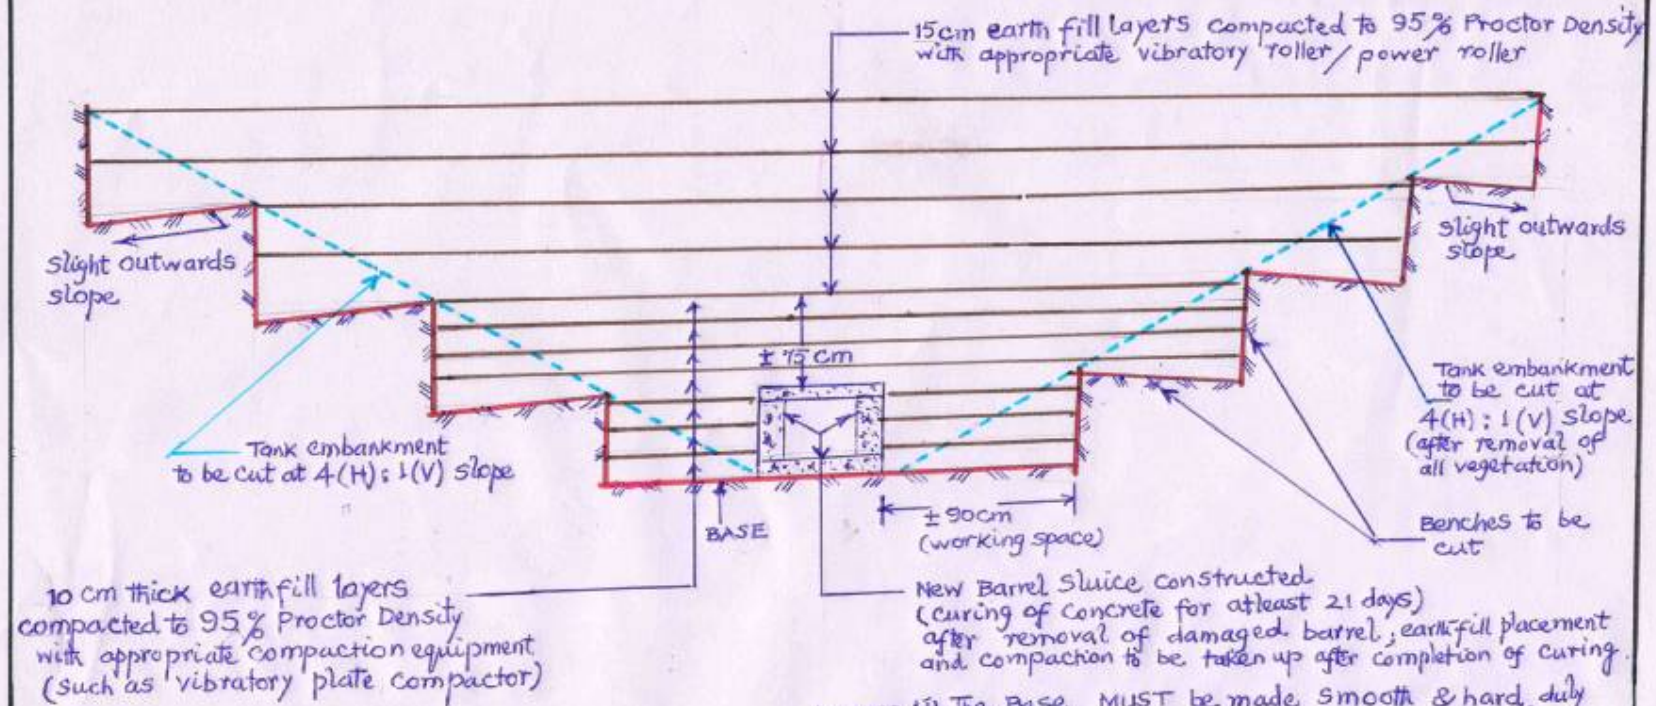 15cm earth fill layers compacted to 95% Proctor Density
with appropriate vibratory roller/power roller
slight outwards
slope
slight outwards
slope
± 75 cm
Tank embankment
to be cut at
4(H):1(V) slope
(after removal of
all vegetation)
Tank embankment
to be cut at 4(H):1(V) slope
BASE
± 90cm
(working space)
Benches to be
cut
10 cm thick earthfill layers
compacted to 95% Proctor Density
with appropriate compaction equipment
(such as vibratory plate compactor)
New Barrel Sluice constructed
(curing of concrete for atleast 21 days)
after removal of damaged barrel; earthfill placement
and compaction to be taken up after completion of curing.
The Base MUST be made smooth & hard duly